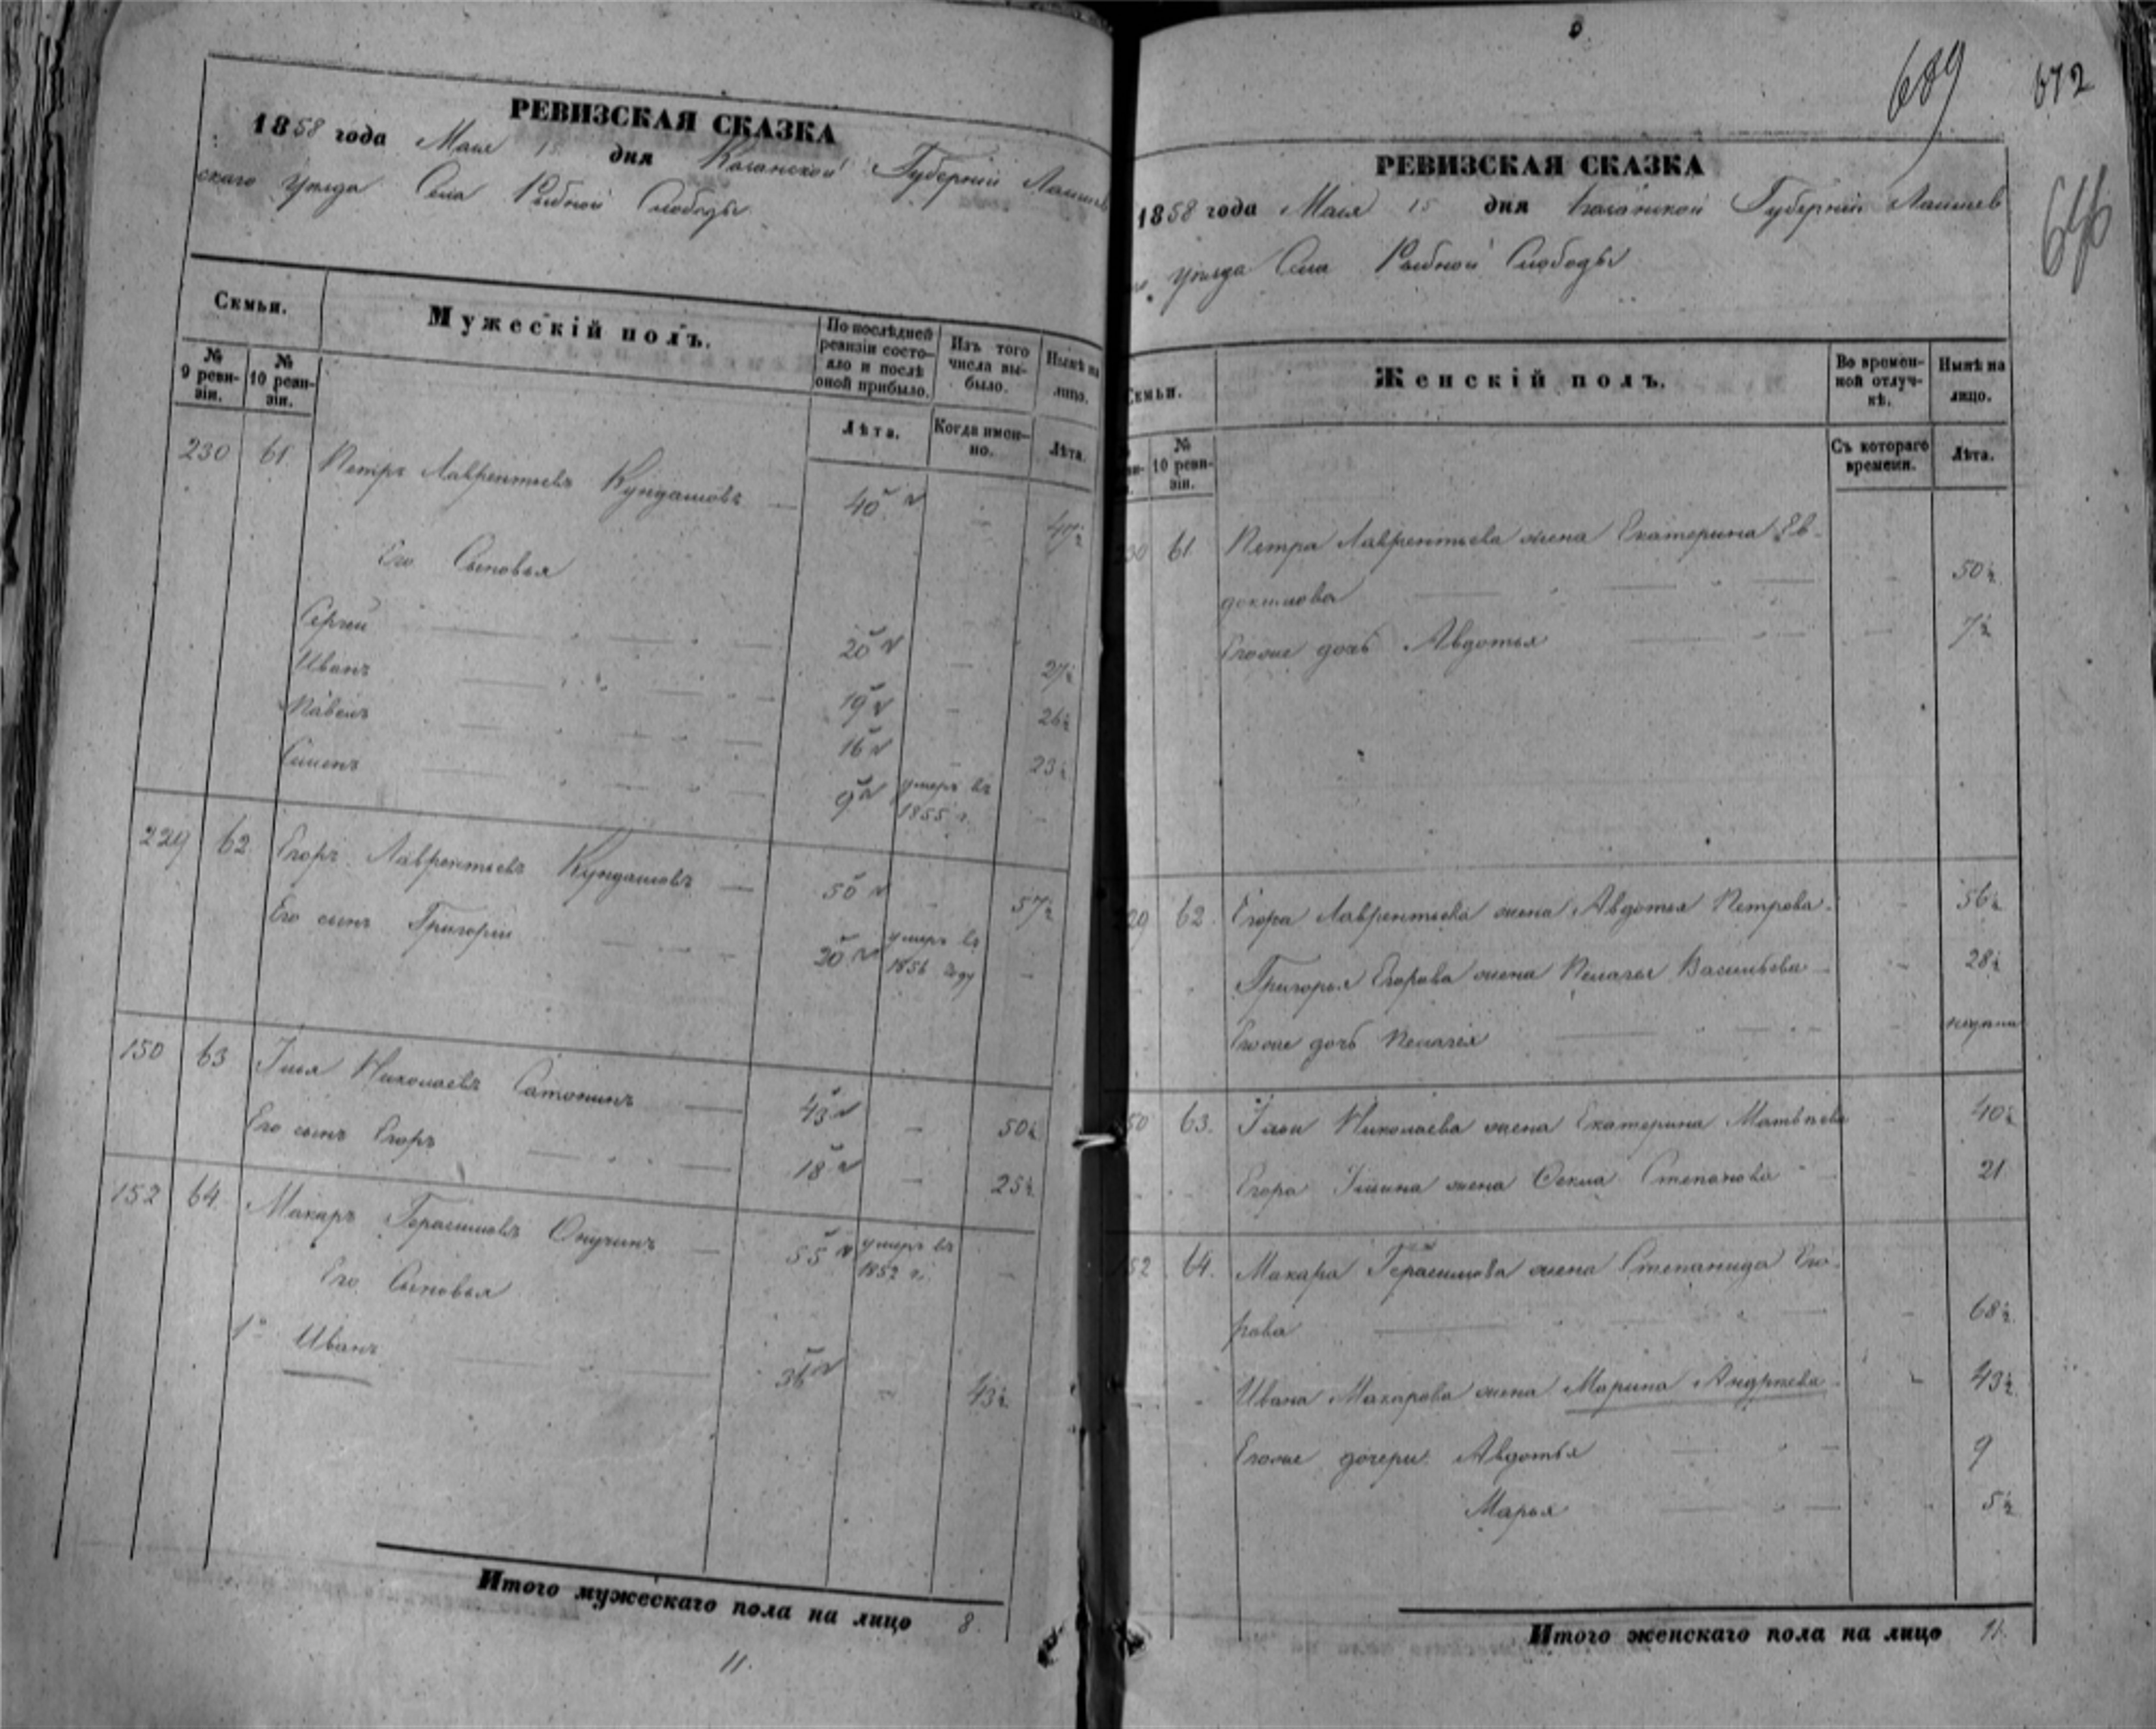 РЕВИЗСКАЯ СКАЗКА
1858 года Мая 15 дня Казанской Губерніи Лаишев
скаго Уѣзда Села Рыбной Слободы
Семьи.
Мужескій полъ.
По послѣдней ревизіи состояло и послѣ оной прибыло.
Изъ того числа выбыло.
Нынѣ на лицо.
№ 9 ревизіи.
№ 10 ревизіи.
Лѣта.
Когда именно.
Лѣта.
230 61 Петръ Лаврентьевъ Кундашовъ — 40 — 47½
Его Сыновья
Сергей 20 — 27½
Иванъ 19 — 26½
Павелъ 16 23½
Семенъ 9 умеръ въ
1855 г. —
229 62 Егоръ Лаврентьевъ Кундашовъ — 50 — 57½
Его сынъ Григорій 20 умеръ въ
1856 году —
150 63 Илья Николаевъ Сатонинъ — 43 — 50½
Его сынъ Егоръ 18 — 25½
152 64 Макаръ Герасимовъ Онучинъ — 55 умеръ въ
1852 г. —
Его Сыновья
1е Иванъ 36 — 43½
Итого мужескаго пола на лицо 8.
11.
689 672
РЕВИЗСКАЯ СКАЗКА
1858 года Мая 15 дня Казанской Губерніи Лаишев
Уѣзда Села Рыбной Слободы
Семьи.
Женскій полъ.
Во временной отлучкѣ.
Нынѣ на лицо.
№ 10 ревизіи.
Съ котораго времени.
Лѣта.
30 61 Петра Лаврентьева жена Екатерина Ев-
докимова 50½
Егоже дочь Авдотья 7½
29 62. Егора Лаврентьева жена Авдотья Петрова 56½
Григорья Егорова жена Пелагья Васильева 28½
Егоже дочь Пелагея
50 63. Ильи Николаева жена Екатерина Матвѣева 40½
Егора Ильина жена Фекла Степанова 21
52 64. Макара Герасимова жена Степанида Его-
рова 68½
Ивана Макарова жена Марина Андреева 43½
Егоже дочери Авдотья 9
Марья 5½
Итого женскаго пола на лицо 11.